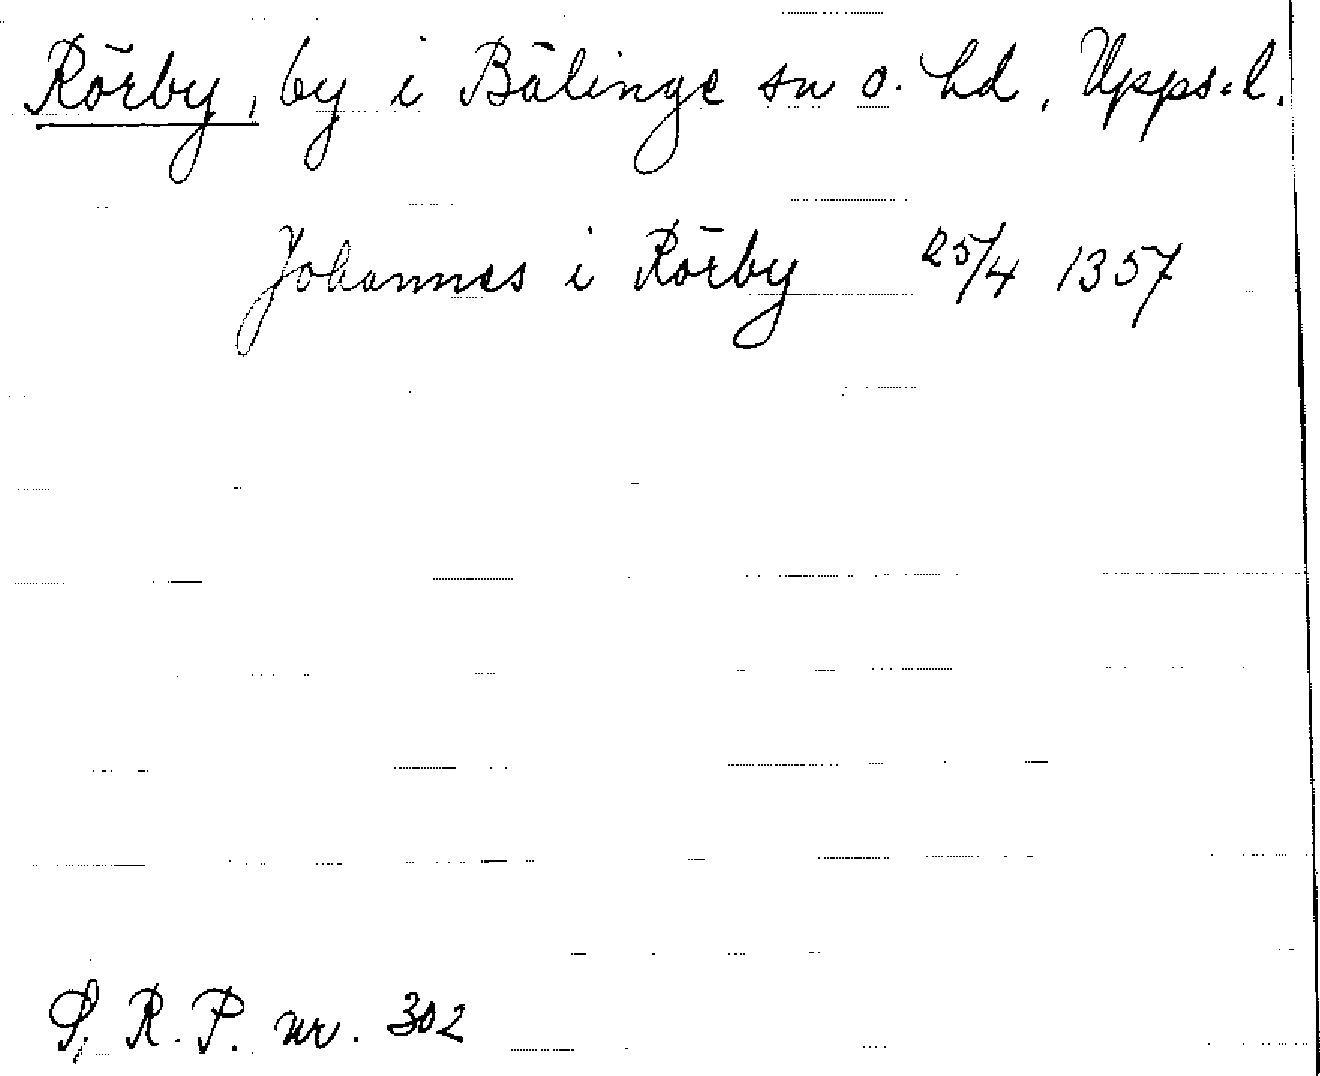 Rörby, by i Bälinge sn o. hd, Upps. l.
Johannes i Rörby 25/4 1357
S. R. P. nr. 302